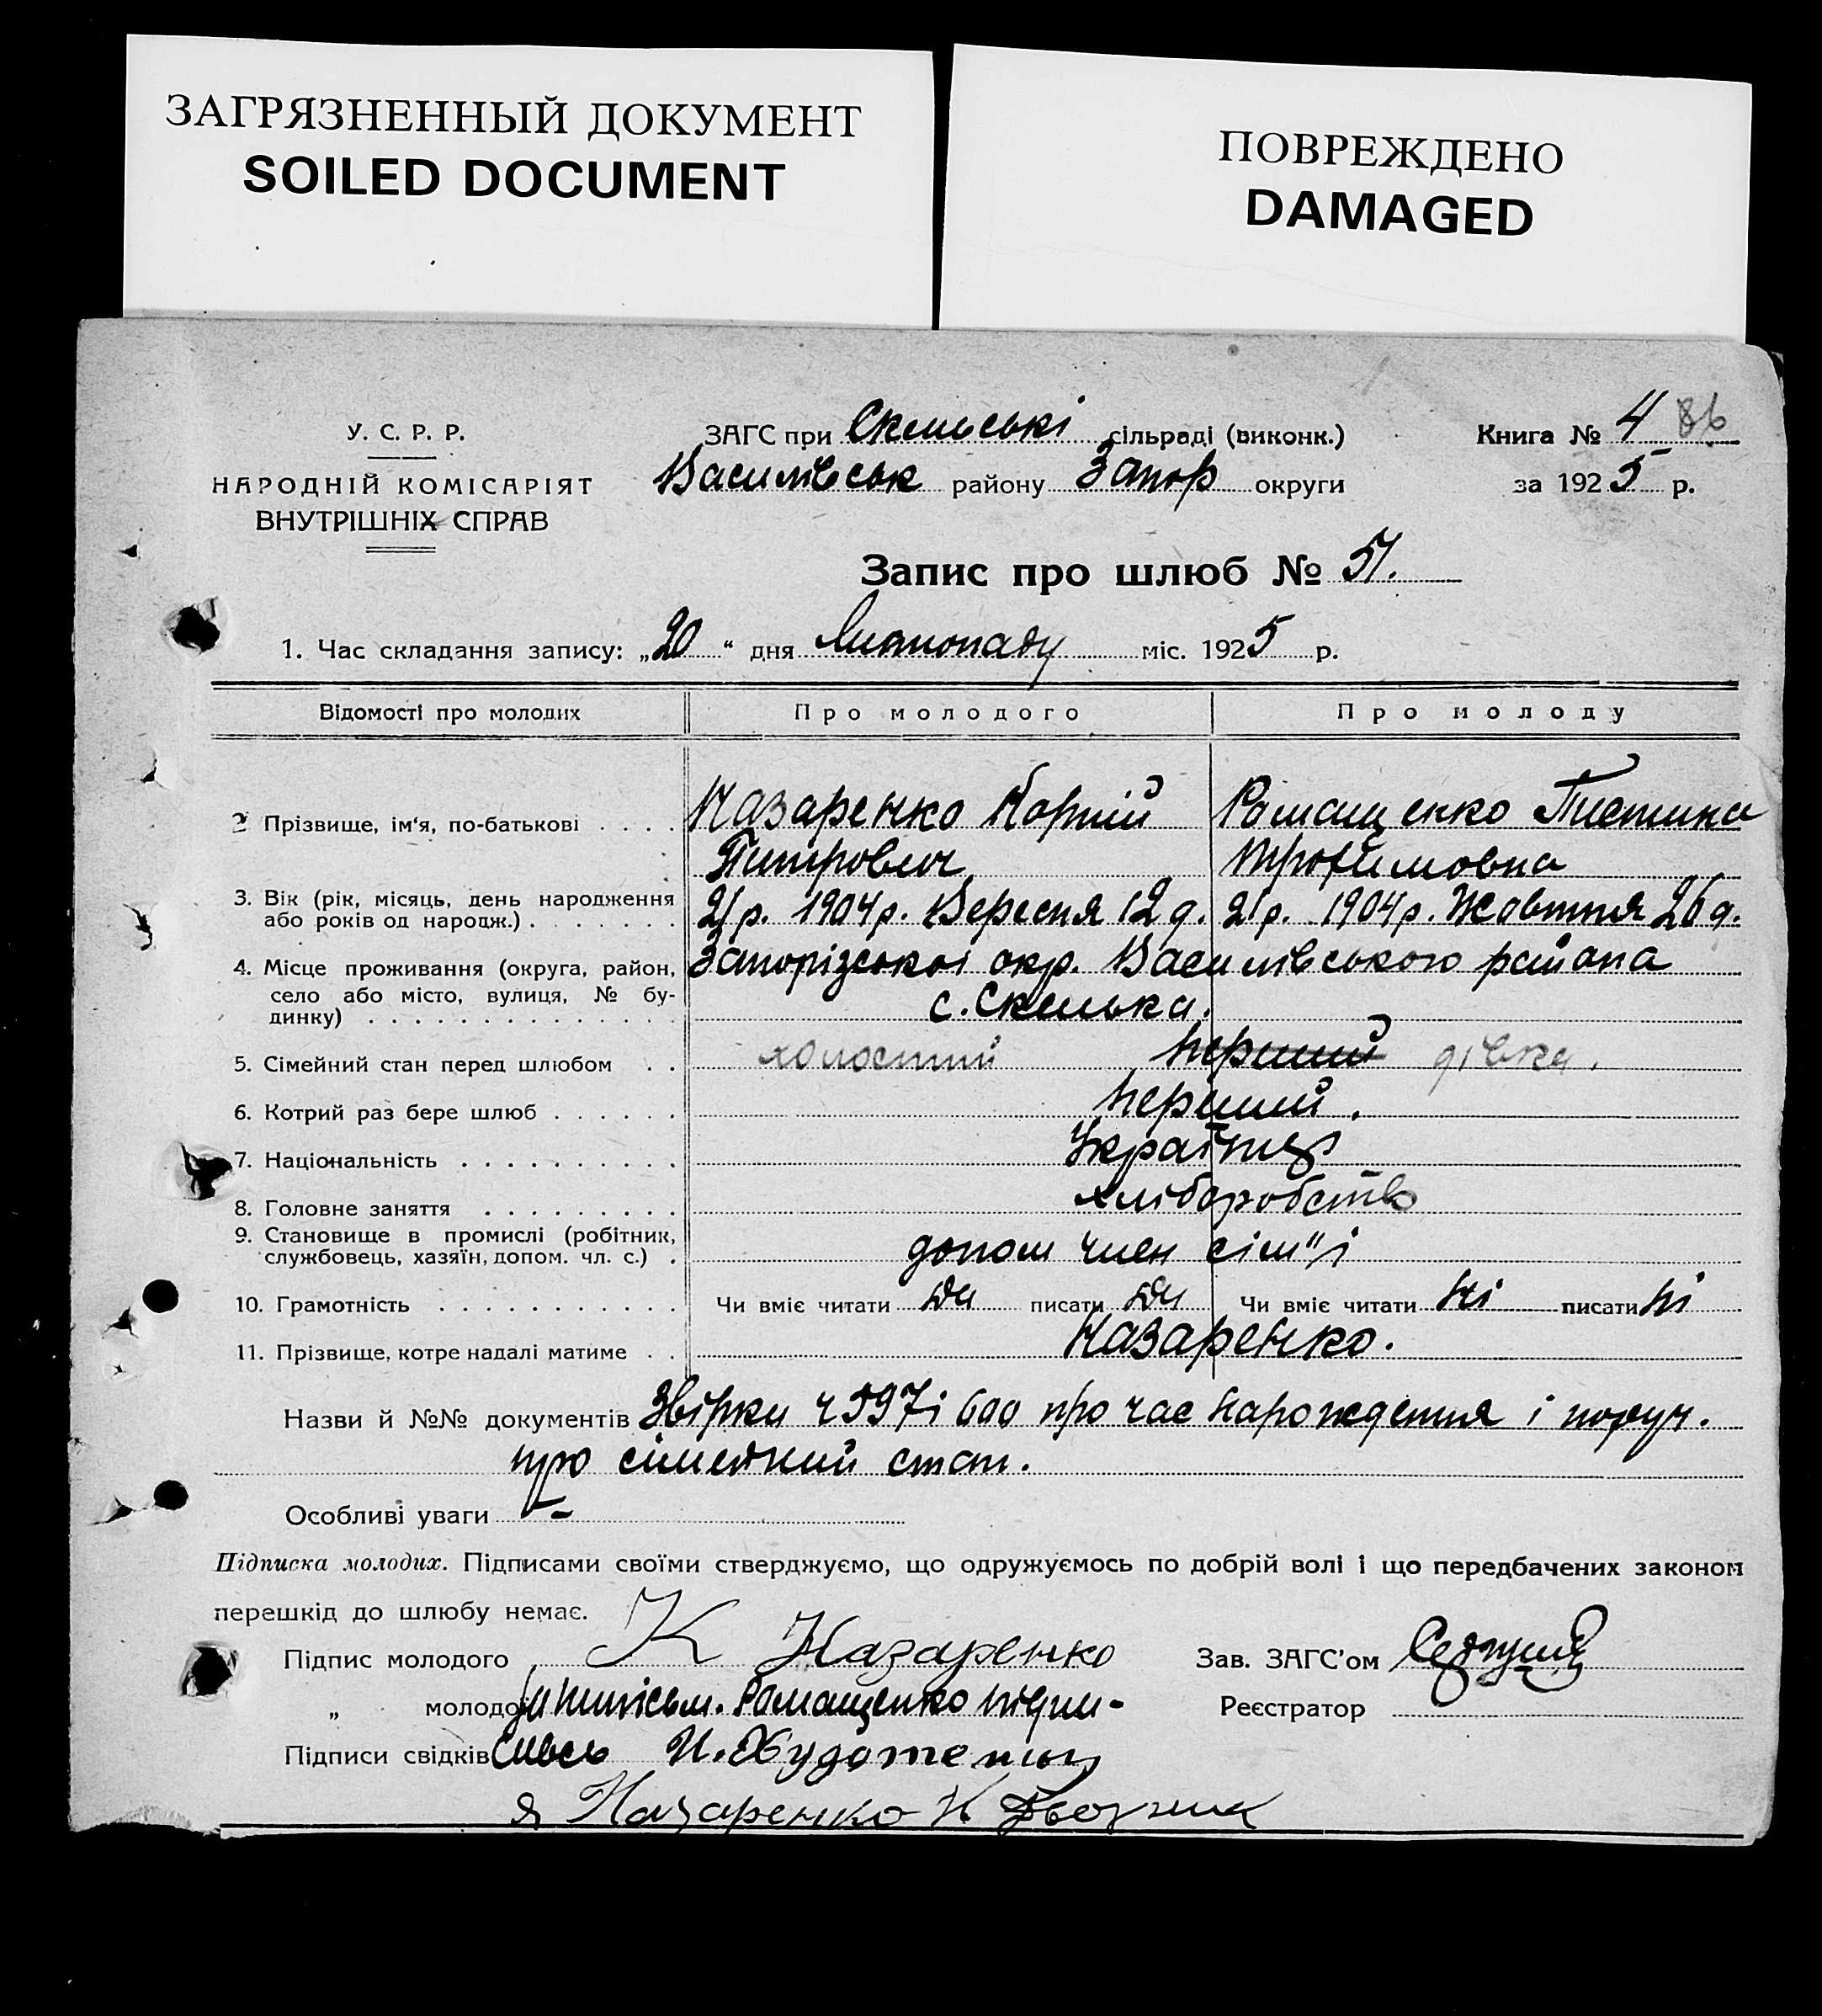 ЗАГРЯЗНЕННЫЙ ДОКУМЕНТ
SOILED DOCUMENT
ПОВРЕЖДЕНО
DAMAGED
У. С. Р. Р.
НАРОДНІЙ КОМІСАРІЯТ
ВНУТРІШНІХ СПРАВ
ЗАГС при Скельські сільраді (виконк.)
Василівськ району Запор округи
Книга № 4 86
за 1925 р.
Запис про шлюб № 51.
1. Час складання запису: „20“ дня Листопаду міс. 1925 р.
Відомості про молодих Про молодого Про молоду
2 Прізвище, ім‘я, по-батькові . . . . Назаренко Корній Ромащенко
Питрович
3. Вік (рік, місяць, день народження
або років од народж.) . . . . . . . 21 р. 1904 р. Вересня 12 д. 21 р. 1904 р. Жовтня 26 д.
4. Місце проживання (округа, район, Запорізськоі окр. Василівського района
село або місто, вулиця, № бу-
динку) . . . . . . . . . . . . . . с. Скелька.
5. Сімейний стан перед шлюбом . . холостий перший дівка.
6. Котрий раз бере шлюб . . . . . . перший.
7. Національність . . . . . . . . . . Україн
8. Головне заняття . . . . . . . . . хліборобство
9. Становище в промислі (робітник,
службовець, хазяїн, допом. чл. с.) . допом член сім"і
10. Грамотність . . . . . . . . . . . Чи вміє читати да писати да Чи вміє читати ні писати ні
11. Прізвище, котре надалі матиме . . Назаренко.
Назви й №№ документів Звірки ч 597 і 600 про час нарождення і поруч.
про сімейний стан.
Особливі уваги –
Підписка молодих. Підписами своїми стверджуємо, що одружуємось по добрій волі і що передбачених законом
перешкід до шлюбу немає.
Підпис молодого К Назаренко Зав. ЗАГС’ом
„ молодої Ромащенко підпи- Реєстратор
Підписи свідків сивсь И.
я Назаренко К